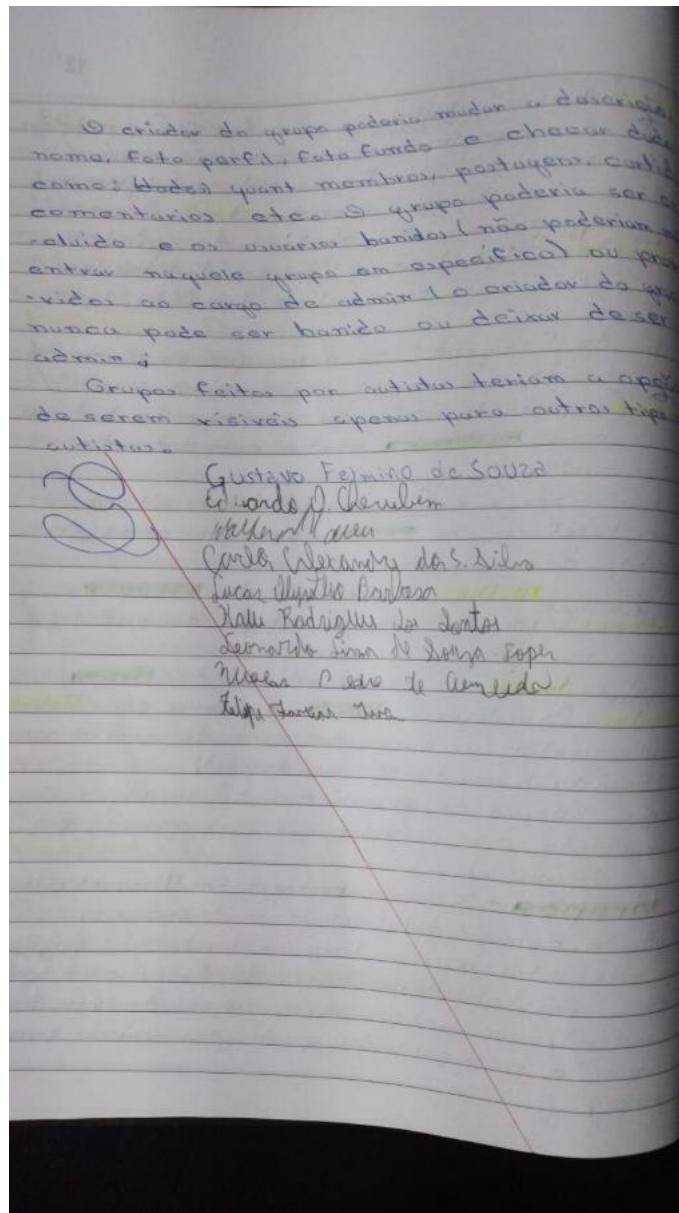 O criador do grupo poderia mudar a descrição,
nome, foto perfil, foto fundo e checar
como: dados quant membros, postagens,
comentarios etc. O grupo poderia ser
-cluido e os usuários banidos (não poderiam
entrar naquele grupo em especifico) ou
-vidos ao cargo de admin (o criador do
nunca pode ser banido ou deixar de ser
admin
Grupos feitos por autistas teriam a opção
de serem visiveis apenas para outros tipo
autistas.
Gustavo Felmino de Souza
Eduardo O. Cherubim
Carlos Alexandre dos S. Silva
Lucas Barbosa
Rodrigues dos Santos
Leonardo Lima de Souza Lopes
Nicolas Pedro de Almeida
Felipe